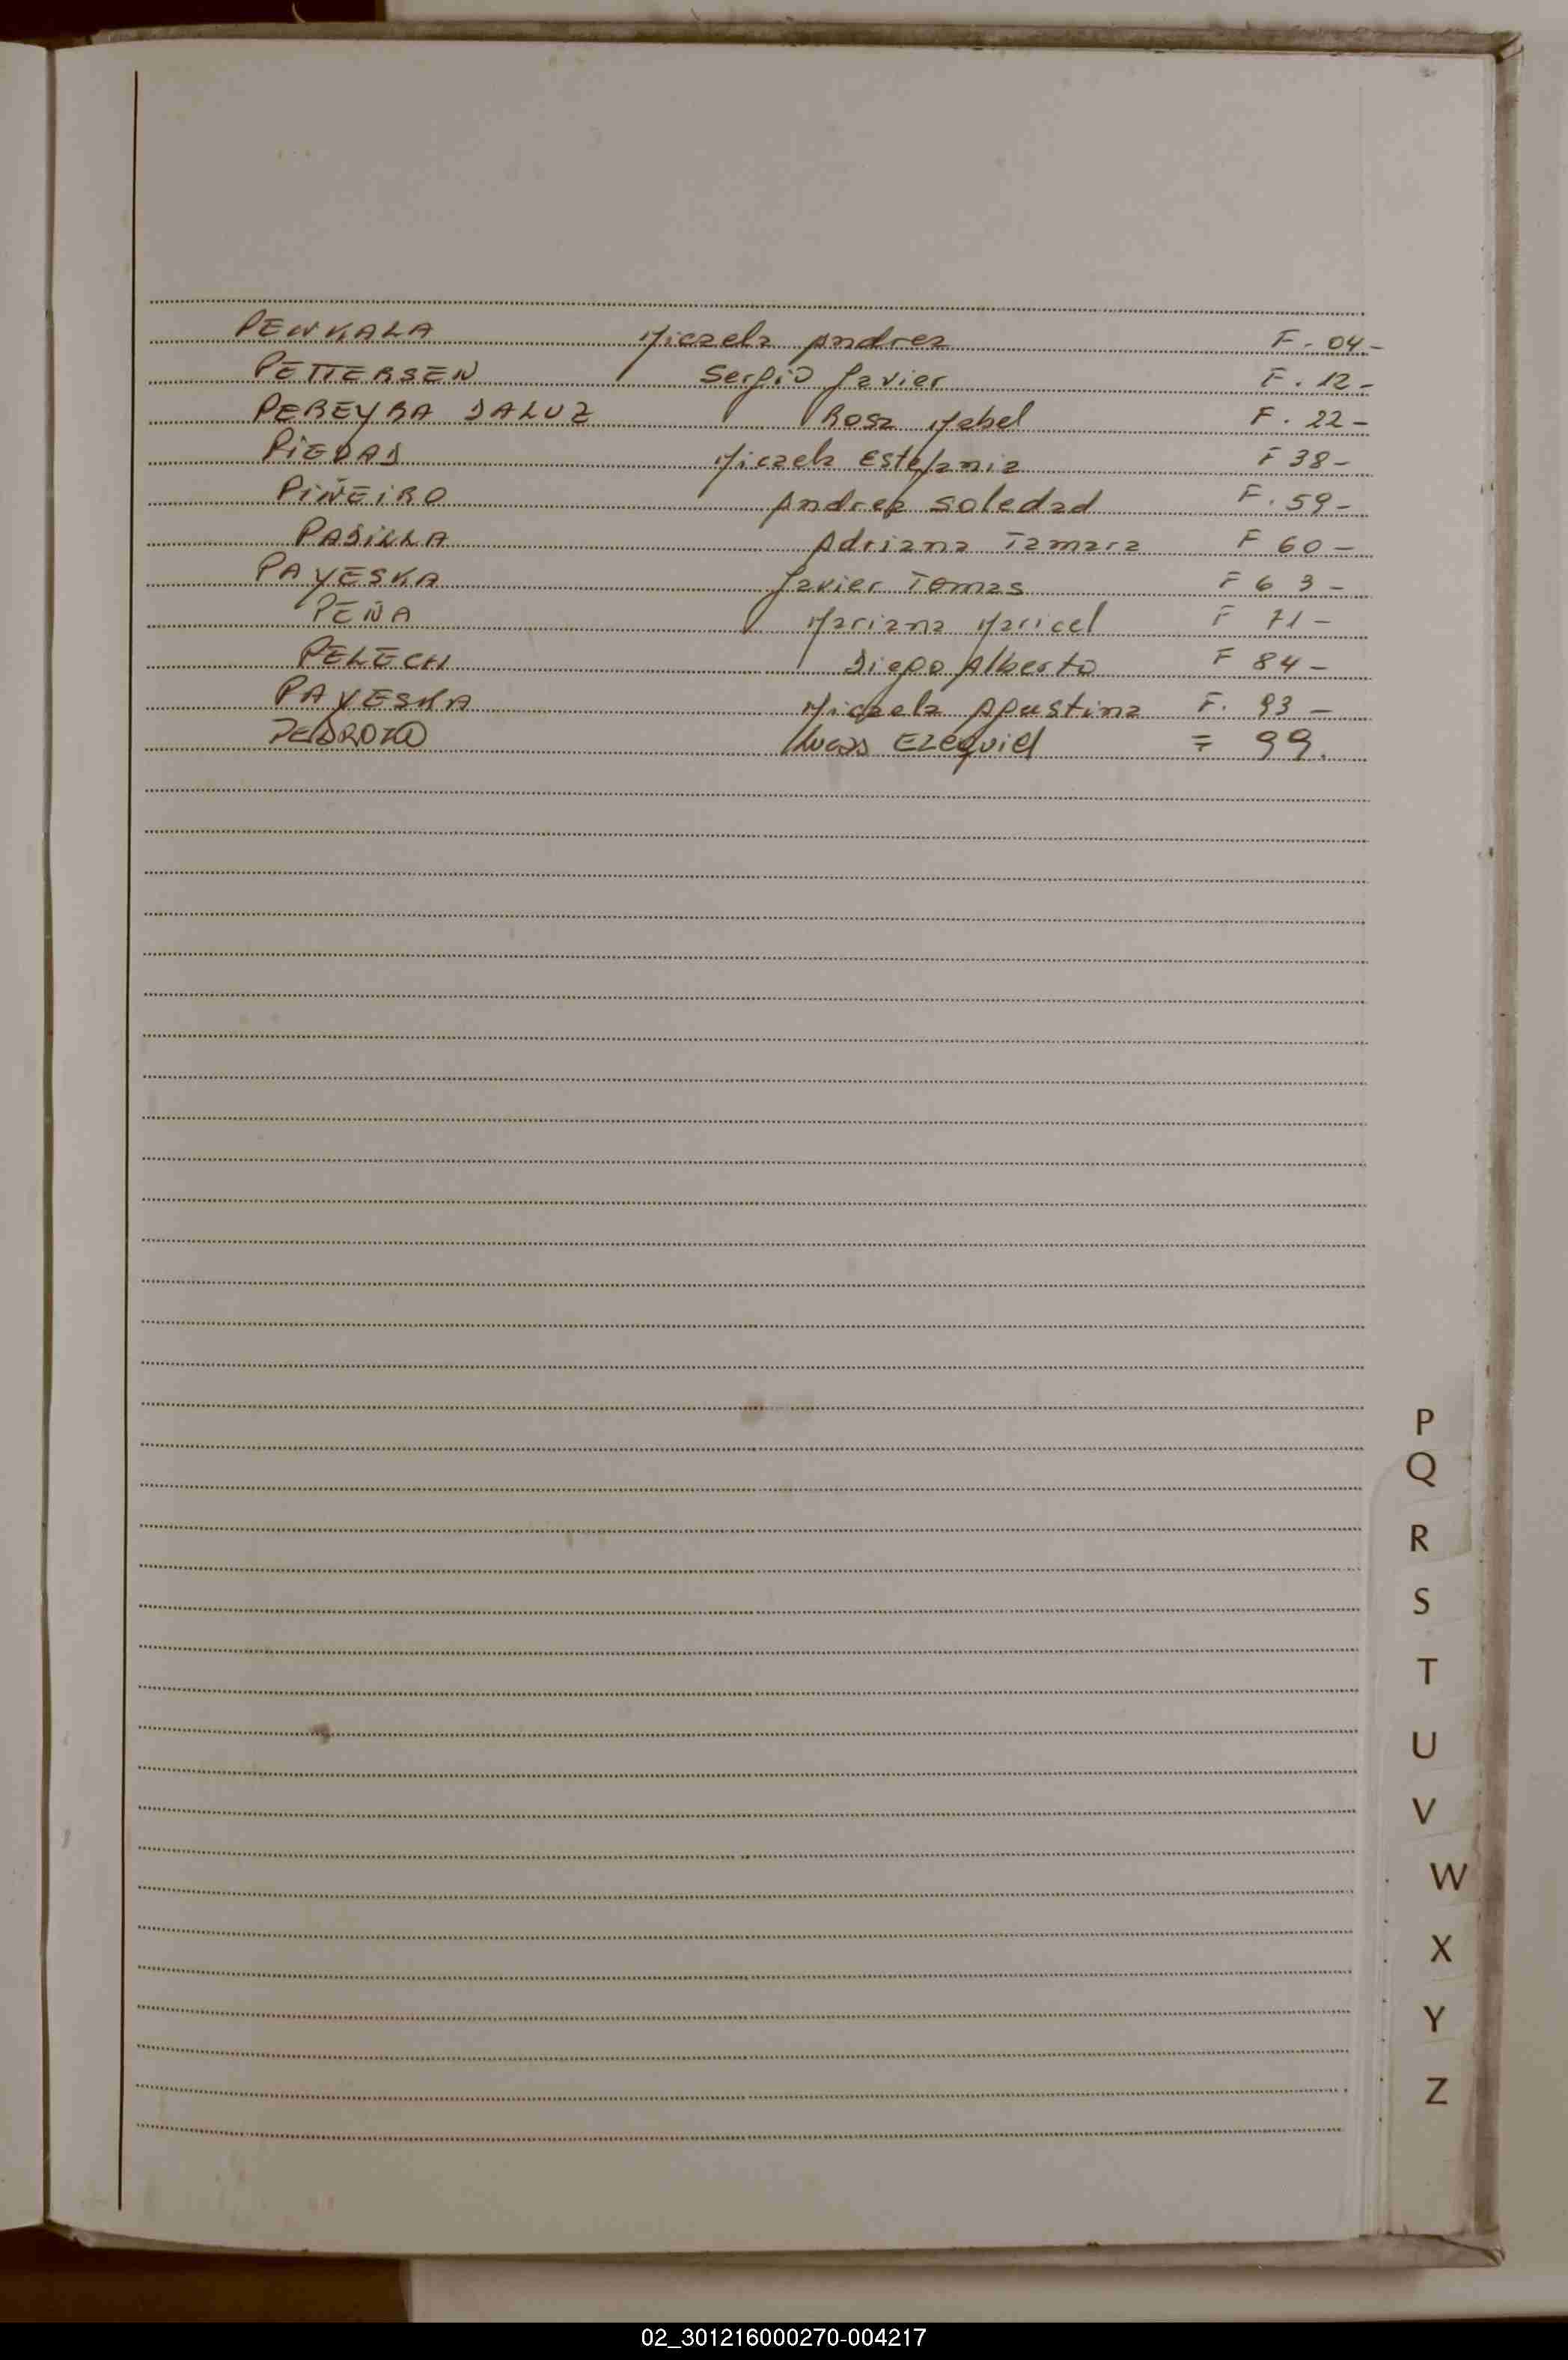 PENKALA Micaela Andrea F. 04-
PETTERSEN Sergio Javier F. 12-
PEREYRA DALUZ Rosa Mabel F. 22-
PIEDAS Micaela Estefania F 38-
PIÑEIRO Andrea Soledad F. 59-
PADILLA Adriana Tamara F 60-
PAYESKA Javier Tomas F 63-
PEÑA Mariana Maricel F 71-
PELECH Diego Alberto F 84-
PAYESKA Micaela Agustina F. 93-
PEDROZO Lucas Ezequiel F 99.
P
Q
R
S
T
U
V
W
X
Y
Z
02_301216000270-004217